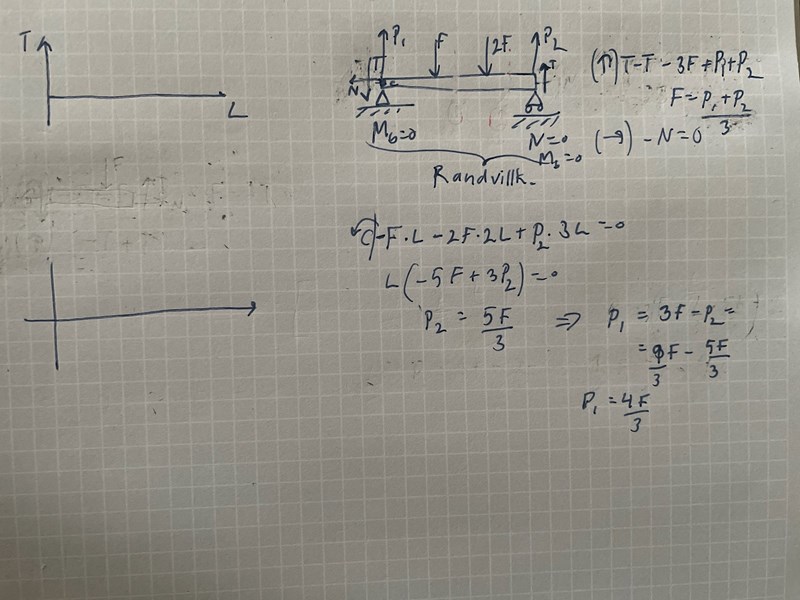 T
L
P₁ F 2F P₂
N T T
M_b=0 N=0
M_b=0
Randvillk.
(↑) T-T-3F+P₁+P₂
F = (P₁+P₂)/3
(→) -N=0
C -F·L-2F·2L+P₂·3L=0
L(-5F+3P₂)=0
P₂ = 5F/3 ⇒ P₁ = 3F-P₂=
= 9/3 F - 5F/3
P₁ = 4F/3